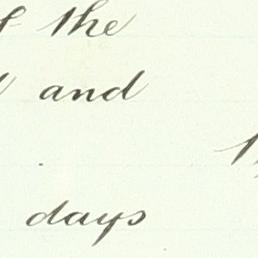 the
and
days